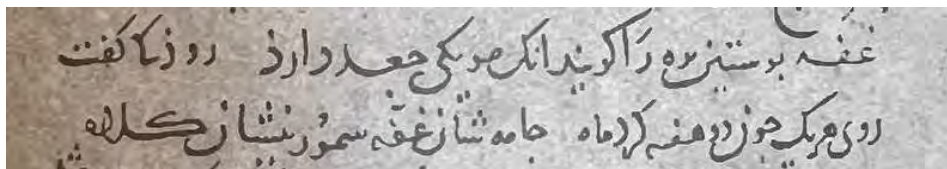 غفه بوستین بره را کویند انک مویکی جعد دارذ روذکی کفت
روی هریک جون دو هفته کرد ماه جامه شان غفه سمورینشان کلاه